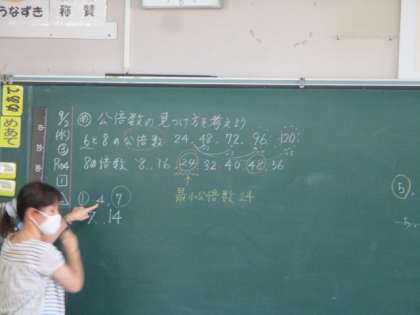 うなずき 称賛
めあて
めあて
9/2
(水)
㋱ 公倍数の見つけ方を考えよう
6と8の公倍数 24、48、72、96、120
P104 8の倍数 8、16、24、32、40、48、56
1
最小公倍数 24
①、4、7
7、14
5